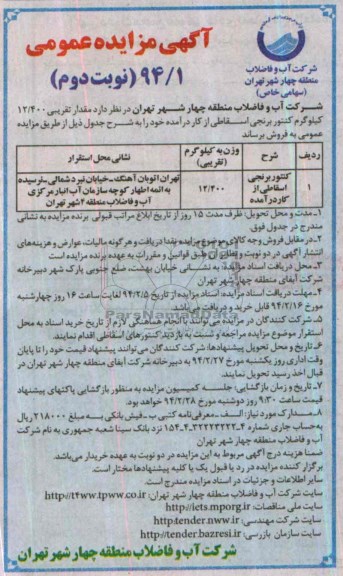 شرکت آب و فاضلاب
منطقه چهار شهر تهران
(سهامی خاص)
آگهی مزایده عمومی
۹۴/۱ (نوبت دوم)
شرکت آب و فاضلاب منطقه چهار شهر تهران در نظر دارد مقدار تقریبی ۱۲/۴۰۰
کیلوگرم کنتور برنجی اسقاطی از کار درآمده خود را به شرح جدول ذیل از طریق مزایده
عمومی به فروش برساند
ردیف شرح وزن به کیلوگرم (تقریبی) نشانی محل استقرار
۱ کنتور برنجی اسقاطی از کار درآمده ۱۲/۴۰۰ تهران اتوبان آهنگ-خیابان نبرد شمالی-نرسیده به ائمه اطهار کوچه سازمان آب انبار مرکزی آب و فاضلاب منطقه ۴ شهر تهران
۱-مدت و محل تحویل: ظرف مدت ۱۵ روز از تاریخ ابلاغ مراتب قبولی برنده مزایده به نشانی
مندرج در جدول فوق.
۲-در مقابل فروش وجه کالای موضوع مزایده نقدا دریافت و هر گونه مالیات، عوارض و هزینه‌های
انتشار آگهی در دو نوبت و نظایر آن طبق قوانین و مقررات به عهده برنده مزایده است
۳-محل دریافت اسناد مزایده: به نشانی خیابان بهشت، ضلع جنوبی پارک شهر دبیرخانه
شرکت آبفای منطقه چهار شهر تهران
۴-مهلت دریافت اسناد مزایده: اسناد مزایده از تاریخ ۹۴/۲/۵ لغایت ساعت ۱۶ روز چهارشنبه
مورخ ۹۴/۲/۱۶ قابل خرید و دریافت می‌باشد.
۵-شرکت کنندگان در مزایده می‌توانند با انجام هماهنگی لازم از تاریخ خرید اسناد به محل
استقرار موضوع مزایده مراجعه و نسبت به بازدید کنتورهای اسقاطی اقدام نمایند.
۶-تاریخ و محل تحویل پیشنهادها: شرکت کنندگان می توانند پیشنهاد قیمت خود را تا پایان
وقت اداری روز یکشنبه مورخ ۹۴/۲/۲۷ به دبیرخانه شرکت آبفای منطقه چهار شهر تهران در
قبال اخذ رسید تحویل نمایند.
۷-تاریخ و زمان بازگشایی: جلسه کمیسیون مزایده به منظور بازگشایی پاکتهای پیشنهاد
قیمت ساعت ۹/۳۰ روز دوشنبه مورخ ۹۴/۲/۲۸ خواهد بود.
۸-مدارک مورد نیاز: الف-معرفی‌نامه کتبی ب-فیش بانکی به مبلغ ۲۱۸۰۰۰ ریال
نزد بانک سینا شعبه جمهوری به نام شرکت
آب و فاضلاب منطقه چهار شهر تهران
ضمنا هزینه درج آگهی مربوط به این مزایده در دو نوبت به عهده خریدار می‌باشد.
برگزار کننده مزایده در رد یا قبول یک یا کلیه پیشنهادها مختار است.
سایر اطلاعات و جزئیات در اسناد مزایده مندرج است.
سایت شرکت آب و فاضلاب منطقه چهار شهر تهران: http://t4ww.tpww.co.ir
سایت ملی مناقصات: http://iets.mporg.ir
سایت شرکت مهندسی: http:tender.nww.ir
سایت سازمان بازرسی: http://tender.bazresi.ir
شرکت آب و فاضلاب منطقه چهار شهر تهران